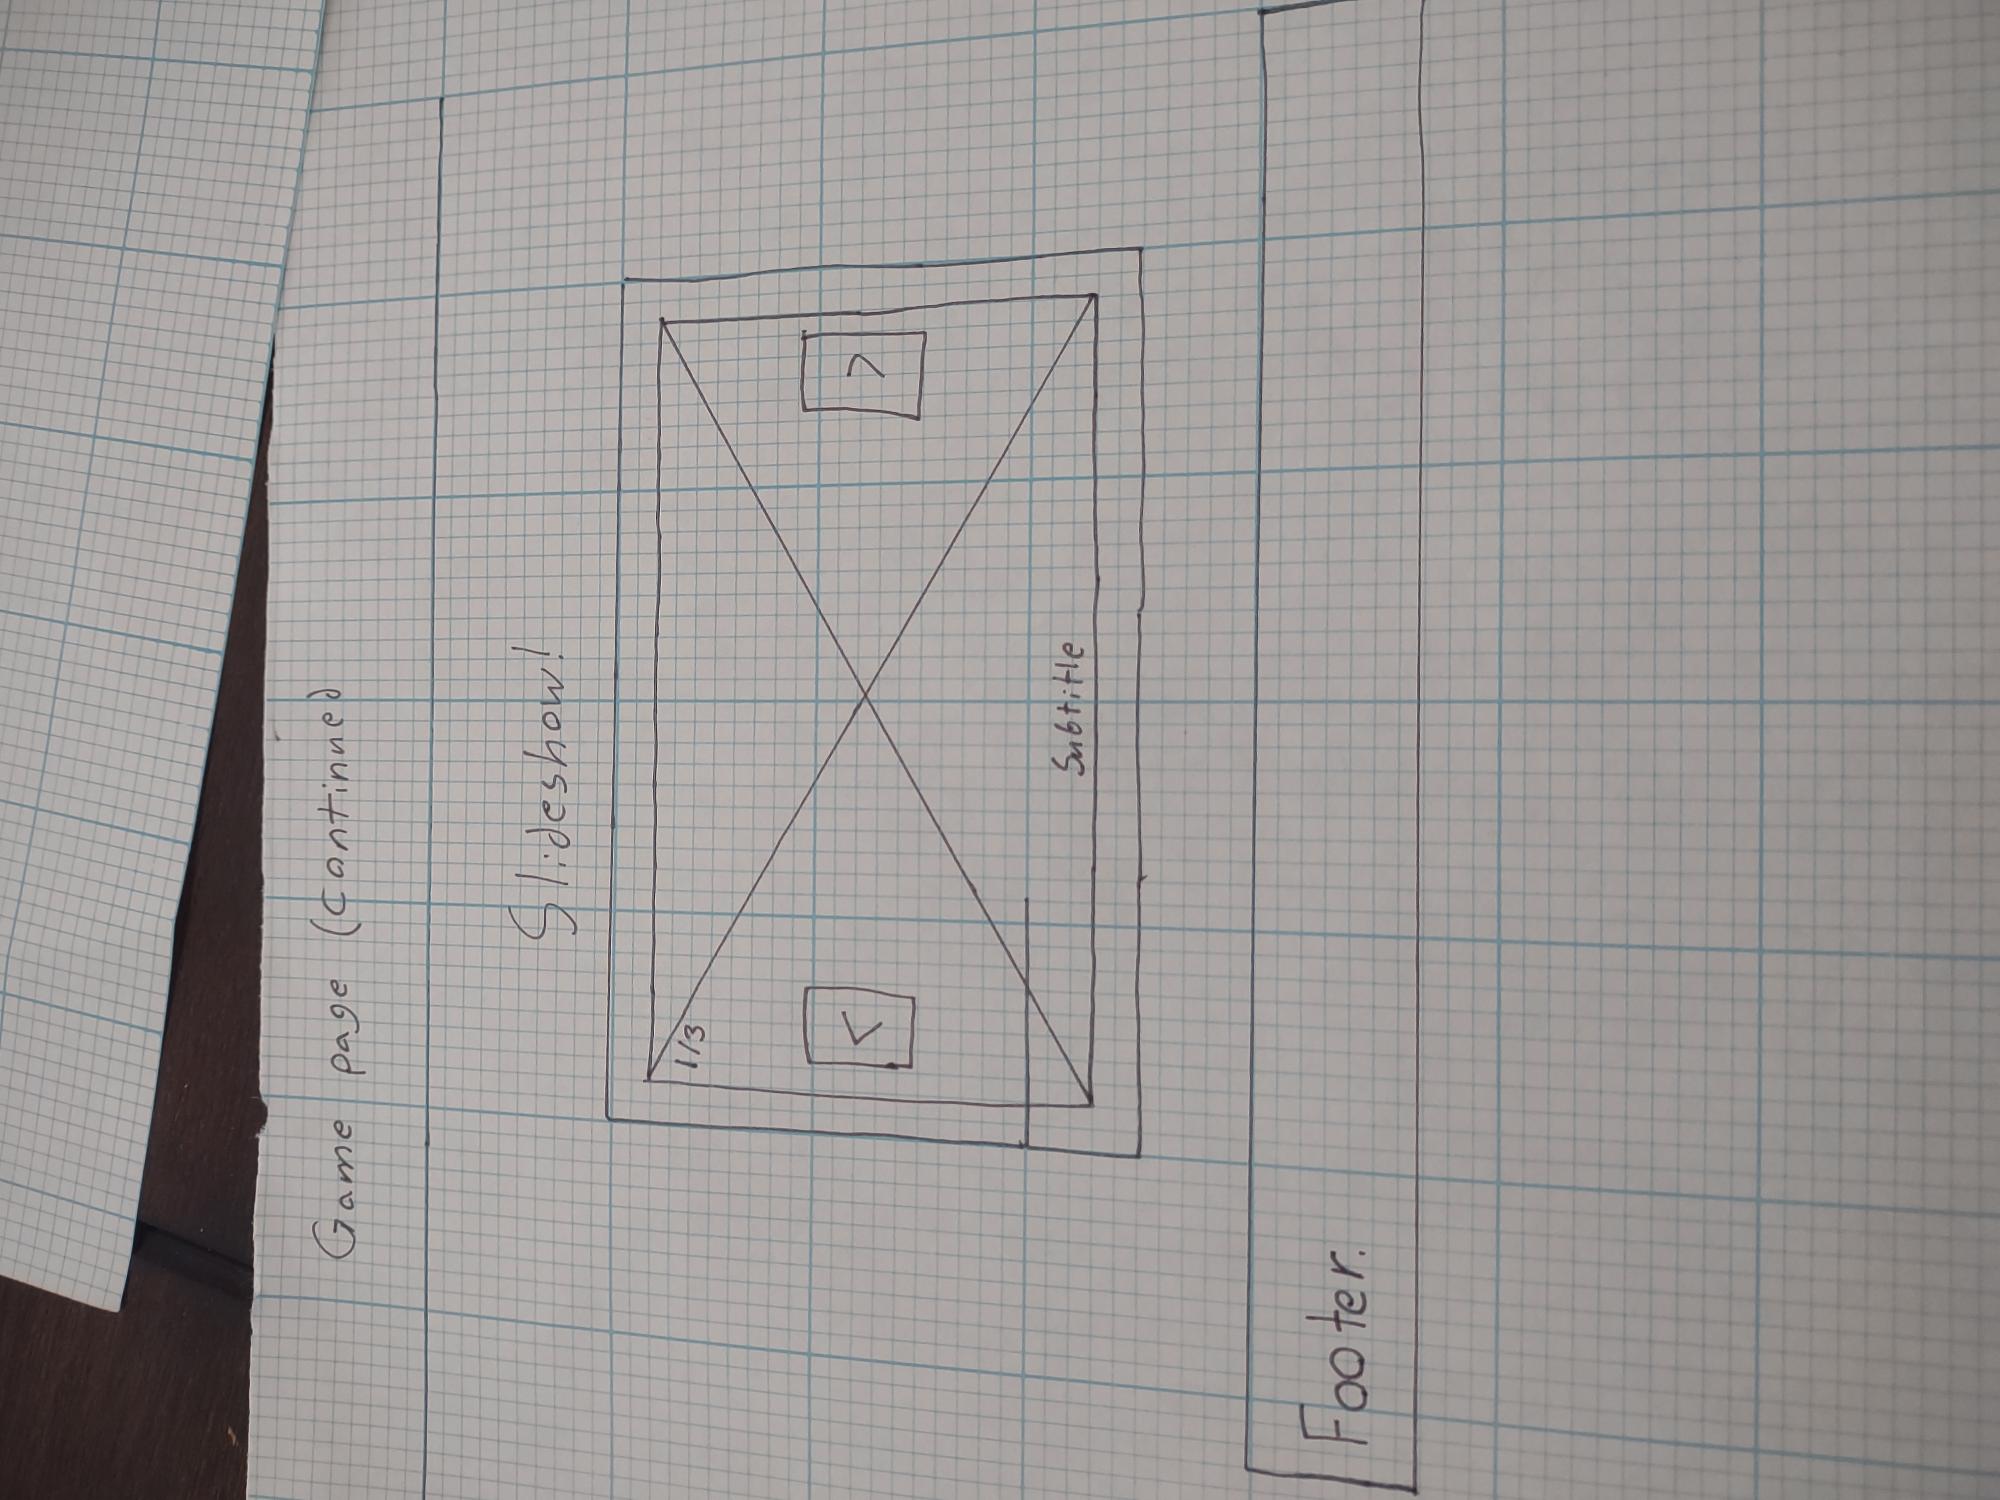 Game page (continued)
Slideshow!
1/3
<
>
Subtitle
Footer.